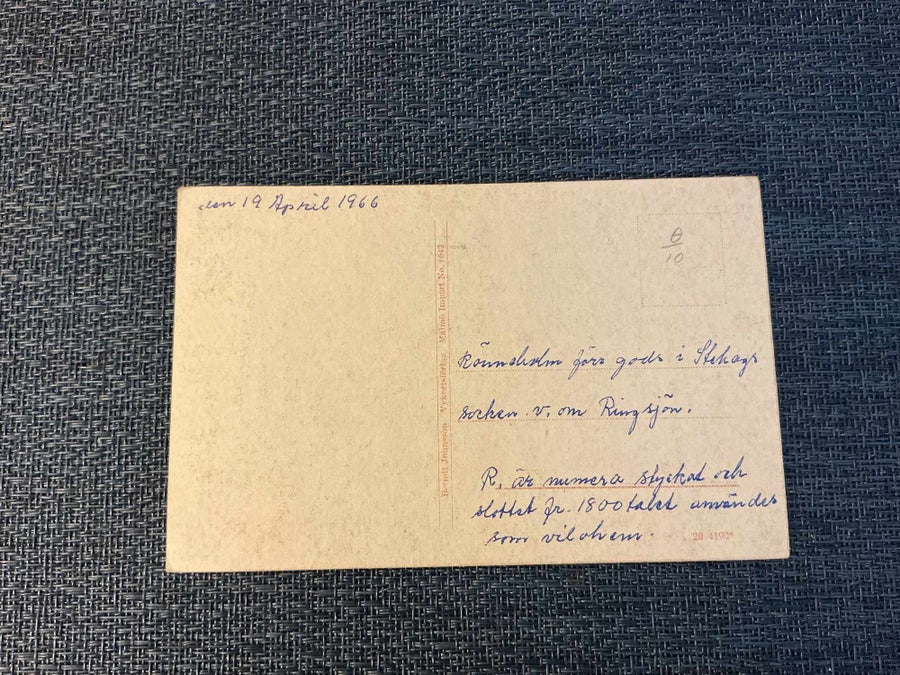 den 19 April 1966
Berndt Johnsson Vykortsförlag Malmö Import No. 1642
θ
10
Rönneholm förr gods i Stehags
socken v. om Ringsjön.
R, är numera styckat och
slottet fr. 1800talet användes
som vilohem.
28 4190*